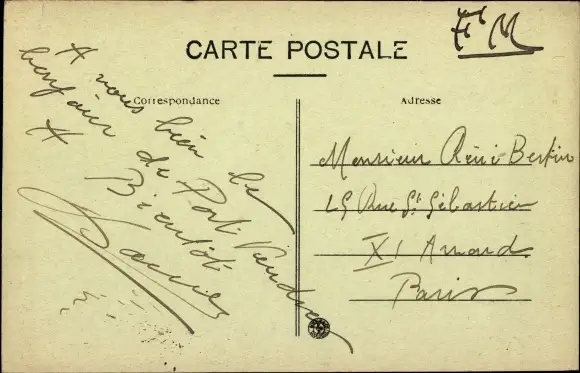 FM
CARTE POSTALE
Correspondance
Adresse
A vous bien le
bonjour de Port Vendres
A Bientôt
Monsieur Réné Bertin
25 Rue St Sébastien
XI Arrond
Paris